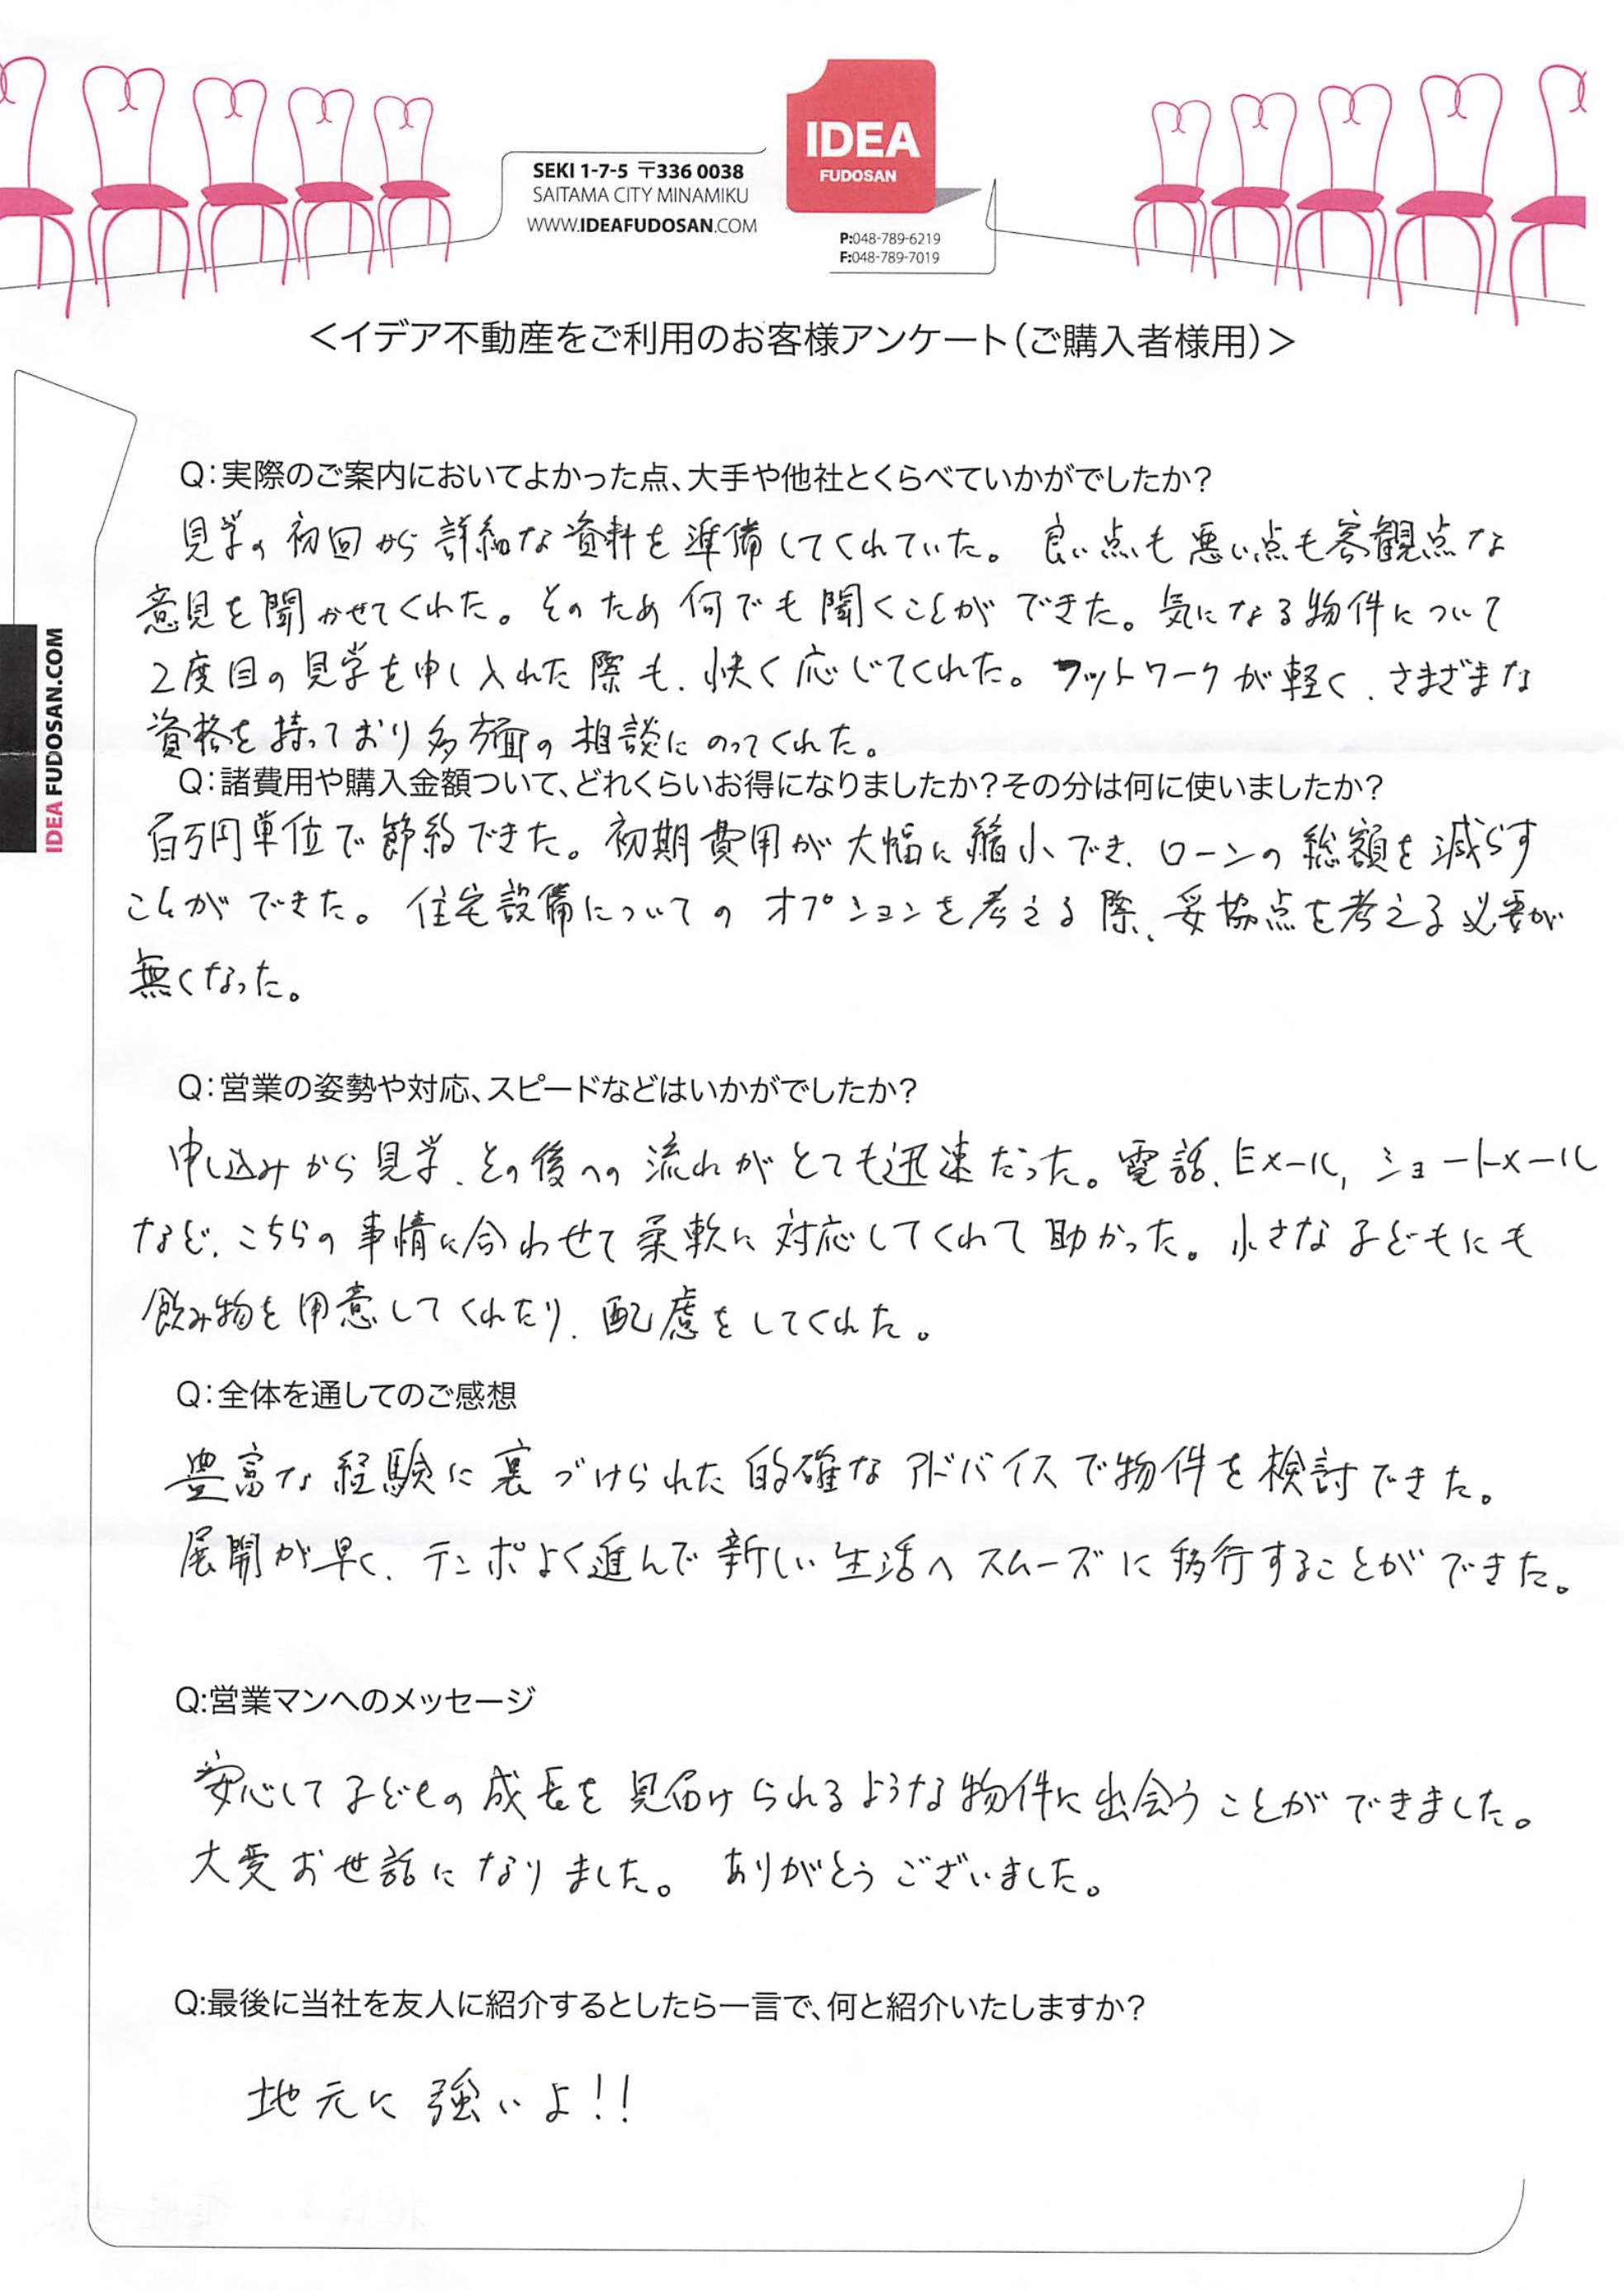 SEKI 1-7-5 〒336 0038
SAITAMA CITY MINAMIKU
WWW.IDEAFUDOSAN.COM
IDEA
FUDOSAN
P:048-789-6219
F:048-789-7019
＜イデア不動産をご利用のお客様アンケート（ご購入者様用）＞
IDEA FUDOSAN.COM
Q：実際のご案内においてよかった点、大手や他社とくらべていかがでしたか？
見学の初回から詳細な資料を準備してくれていた。良い点も悪い点も客観点な
意見を聞かせてくれた。そのため何でも聞くことができた。気になる物件について
2度目の見学を申し入れた際も、快く応じてくれた。フットワークが軽く、さまざまな
資格を持っており多方面の相談にのってくれた。
Q：諸費用や購入金額ついて、どれくらいお得になりましたか？その分は何に使いましたか？
百万円単位で節約できた。初期費用が大幅に縮小でき、ローンの総額を減らす
ことができた。住宅設備についてのオプションを考える際、妥協点を考える必要が
無くなった。
Q：営業の姿勢や対応、スピードなどはいかがでしたか？
申し込みから見学、その後への流れがとても迅速だった。電話、Eメール, ショートメール
など、こちらの事情に合わせて柔軟に対応してくれて助かった。小さな子どもにも
飲み物を用意してくれたり、配慮をしてくれた。
Q：全体を通してのご感想
豊富な経験に裏づけられた的確なアドバイスで物件を検討できた。
展開が早く、テンポよく進んで新しい生活へスムーズに移行することができた。
Q:営業マンへのメッセージ
安心して子どもの成長を見届けられるような物件に出会うことができました。
大変お世話になりました。ありがとうございました。
Q:最後に当社を友人に紹介するとしたら一言で、何と紹介いたしますか？
地元に強いよ！！